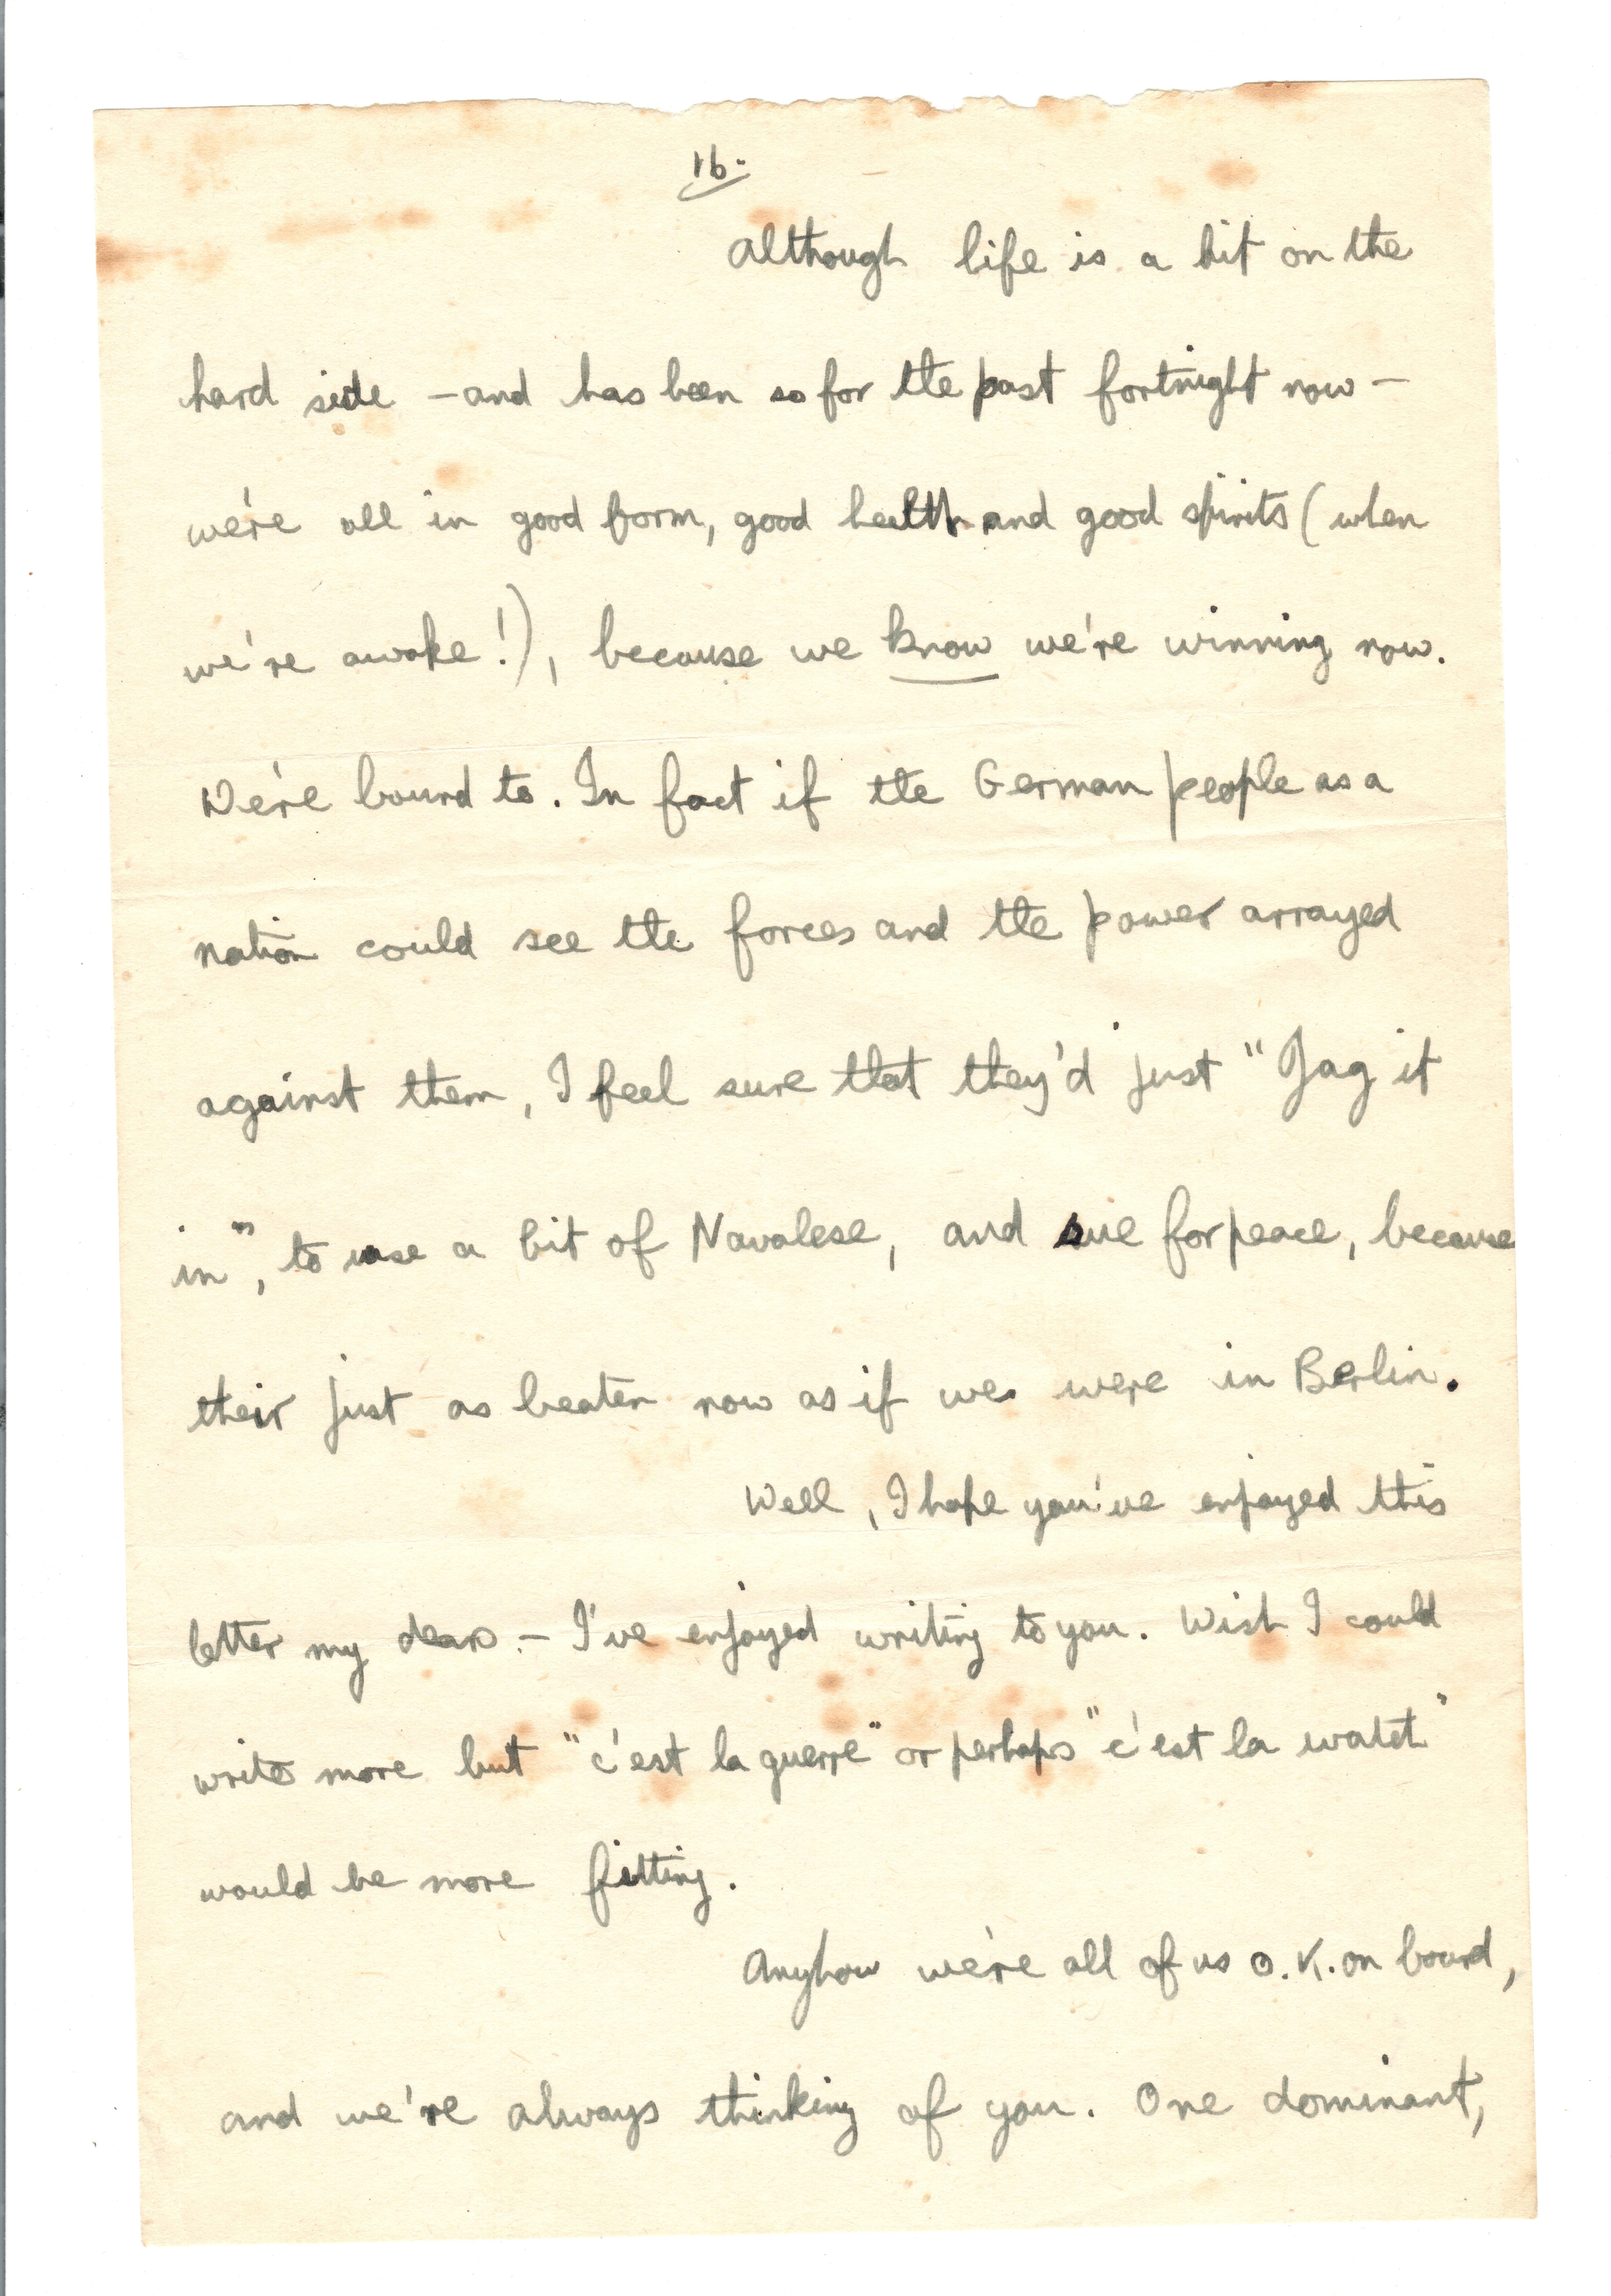 16.
Although life is a bit on the
hard side - and has been so for the past fortnight now -
we're all in good form, good health and good spirits (when
we're awake!), because we know we're winning now.
We're bound to. In fact if the German people as a
nation could see the forces and the power arrayed
against them, I feel sure that they'd just "Jag it
in", to use a bit of Navalese, and sue for peace, because
their just as beaten now as if we were in Berlin.
Well, I hope you've enjoyed this
letter my dears. - I've enjoyed writing to you. Wish I could
write more but "c'est la guerre" or perhaps "c'est la watch"
would be more fitting.
Anyhow we're all of us O.K. on board,
and we're always thinking of you. One dominant,